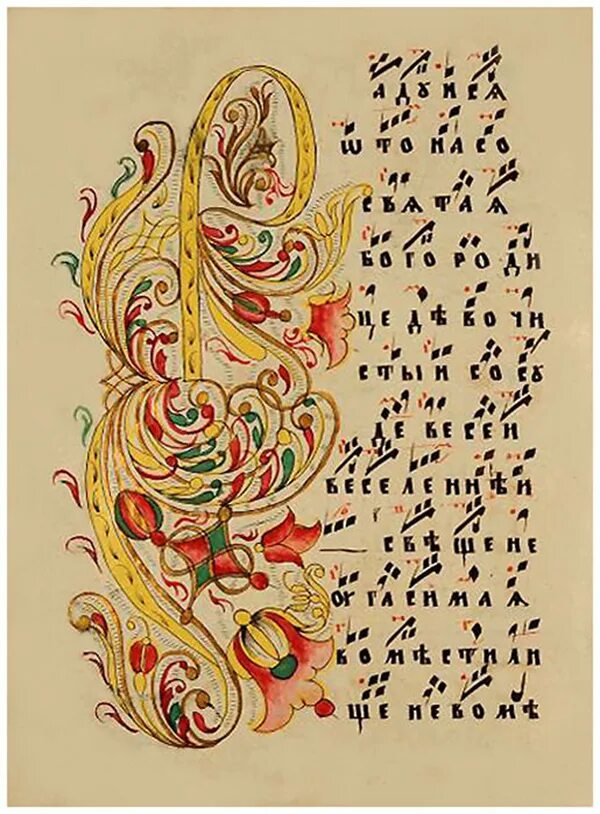 Р АДУИСѦ
ѠТОНАСО
СВѦТАѦ
БОГОРОДИ
ЦЕДѢВОЧИ
СТЫИСОСУ
ДЕВЕСЕИ
ВЕСЕЛЕННѢИ
СВѢЩЕНЕ
ОУГАСИМАѦ
ВОМѢСТИЛИ
ЩЕНЕВОМѢ